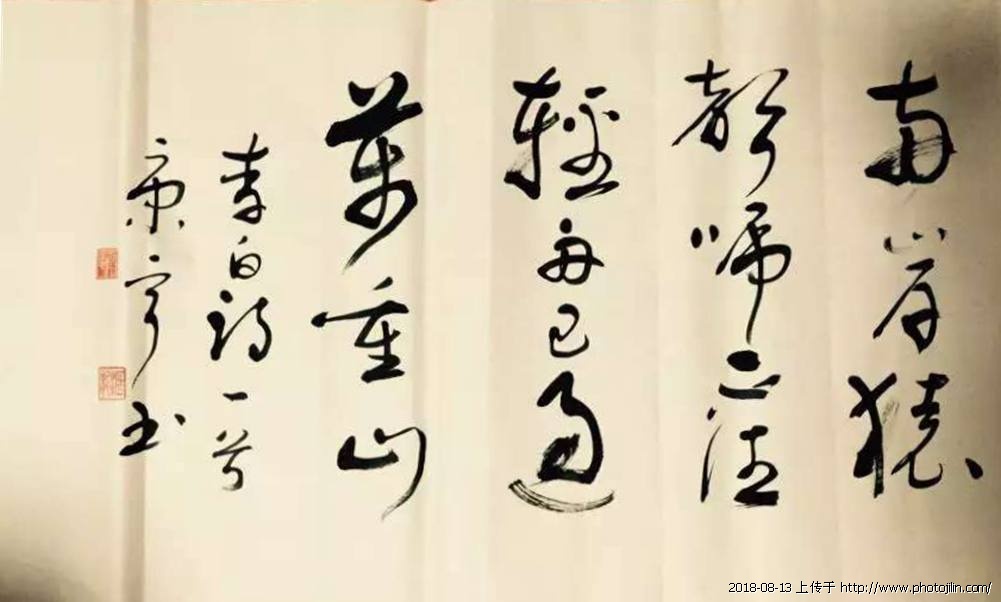 兩岸猿
聲啼不住
輕舟已過
萬重山
李白詩一首
书
2018-08-13 上传于 http://www.photojilin.com/